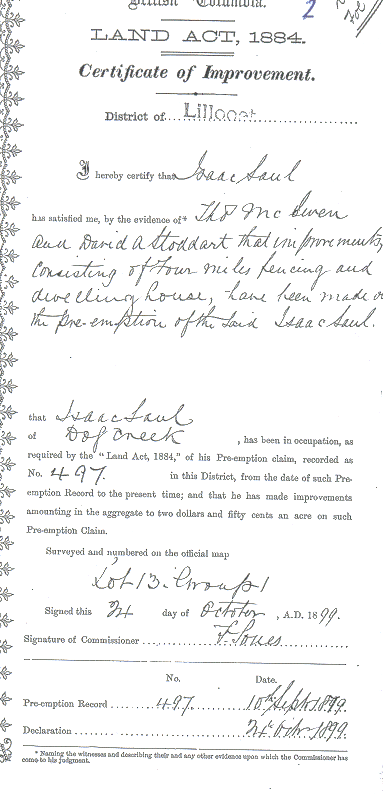 British Columbia.
2
LAND ACT, 1884.
Certificate of Improvement.
District of Lillooet
I hereby certify that Isaac Saul
has satisfied me, by the evidence of* Thos McEwen
and David A Stoddart that improvements,
consisting of four miles fencing and
dwelling house, have been made o
the pre-emption of the said Isaac Saul.
that Isaac Saul
of Dog Creek, has been in occupation, as
required by the "Land Act, 1884," of his Pre-emption claim, recorded as
No. 497. in this District, from the date of such Pre-
emption Record to the present time; and that he has made improvements
amounting in the aggregate to two dollars and fifty cents an acre on such
Pre-emption Claim.
Surveyed and numbered on the official map
Lot 13. Group 1
Signed this 24 day of October, A.D. 1899.
Signature of Commissioner F. Soues
No. Date.
Pre-emption Record 497. 10th Sept 1899.
Declaration 24 Octr. 1899.
* Naming the witnesses and describing their and any other evidence upon which the Commissioner has
come to his judgment.